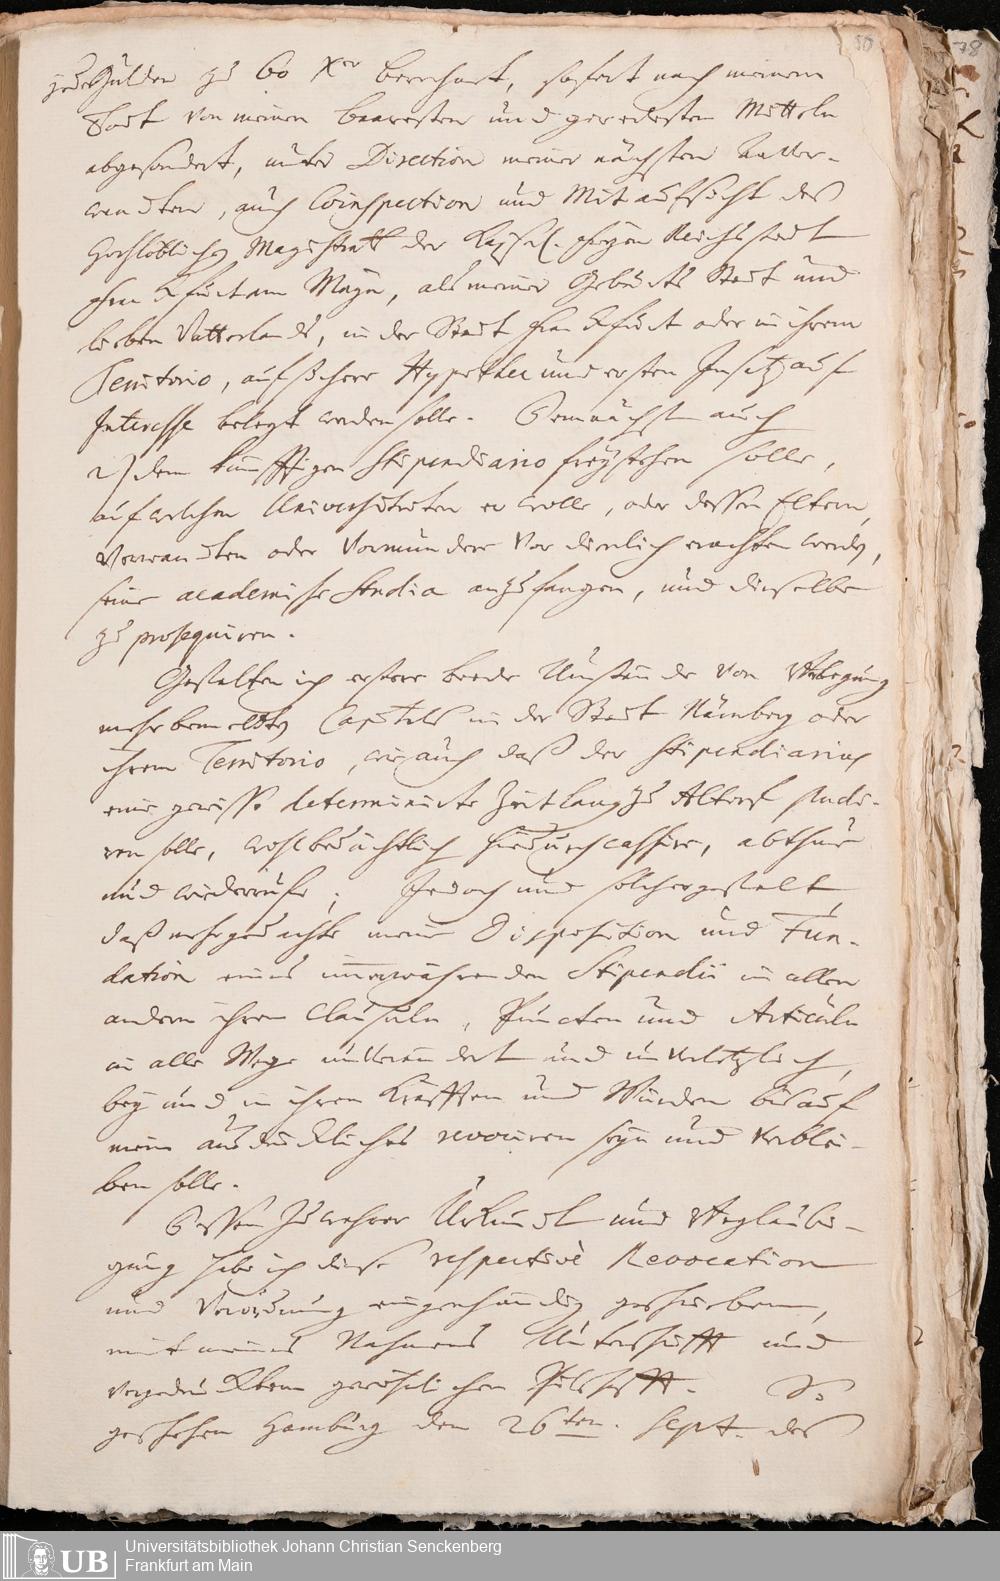 50
78
jede Gülden zu 60 Xer berechnet, sofort nach meinem
Todt von meinen baaresten und geredesten Mitteln
abgesondert, unter Direction meiner nächsten Anver-
wandten, auch Coinspection und Mitaufsicht des
Hochlöblichen Magistrats der Kayserl. freyen Reichsstadt
Franckfurt am Mayn, als meiner Geburts Stadt und
lieben Vatterlands, in der Stadt Franckfurt oder in ihrem
Territorio, auf sichere Hypothec und ersten Insatz auf
Interesse belegt werden solle. Demnächst auch
2) dem künfftigen Stipendiario freystehen solle,
auf welchen Universitaeten er wolle, oder dessen Eltern,
Verwandten oder Vormündere vor dienlich erachten werden,
seine academische Studia anzufangen, und dieselbe
zu prosequiren.
Gestalten ich erstere beede Umstände von Belegung
mehrbemeldten Capitals in der Stadt Nürnberg oder
ihrem Territorio, wie auch daß der Stipendiarius
eine gewisse determinirte Zeitlang zu Altorf studi-
ren solle, wohlbedächtlich hiedurch cassire, abthue
und wiederrufe; Jedoch und solchergestalt,
daß mehrgedachte meine Disposition und Fun-
dation eines immerwährenden Stipendii in allen
andern ihren Clausuln, Puncten und Articuln
in alle Wege unverändert und unverletzlich,
bey und in ihren Kräfften und Würden biß auf
mein ausdrückliches revociren seyn und verblei-
ben solle.
Dessen zu wahrer Urkundt und Beglaubi-
gung habe ich diese respective Revocation
und Verordnung eigenhändig geschrieben,
mit meines Nahmens Unterschrifft und
vorgedrucktem gewöhnlichen Pittschafft. So
geschehen Hamburg den 26ten. Sept. des
UB
Universitätsbibliothek Johann Christian Senckenberg
Frankfurt am Main